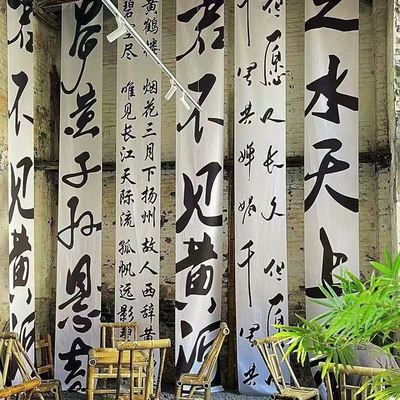 之水天上
但愿人长久 但愿
千里共婵娟 千里共
君不见黄河
黄鹤楼 烟花三月下扬州 故人西辞黄
碧空尽 唯见长江天际流 孤帆远影碧
黄子孙
君不见黄河